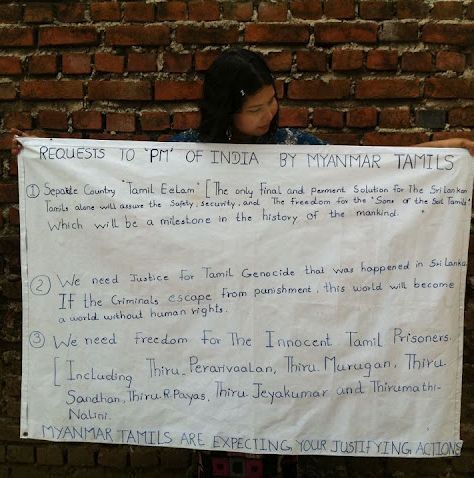 REQUESTS TO "PM" OF INDIA BY MYANMAR TAMILS
① Sepatte Country "Tamil Eelam" [The only final and perment Solution for The Sri Lankan
Tamils alone will assure the Safety, Security, and The freedom for the "Sons of the Soil Tamils"
Which will be a milestone in the history of the mankind.
② We need Justice for Tamil Genocide that was happened in Sri Lanka.
If the Criminals escape from punishment, this world will become
a world without human rights.
③ We need freedom for The Innocent Tamil Prisoners.
[Including Thiru. Perarivaalan, Thiru. Murugan, Thiru.
Sandhan, Thiru. R. Payas, Thiru. Jeyakumar and Thirumathi-
Nalini.
MYANMAR TAMILS ARE EXPECTING YOUR JUSTIFYING ACTIONS